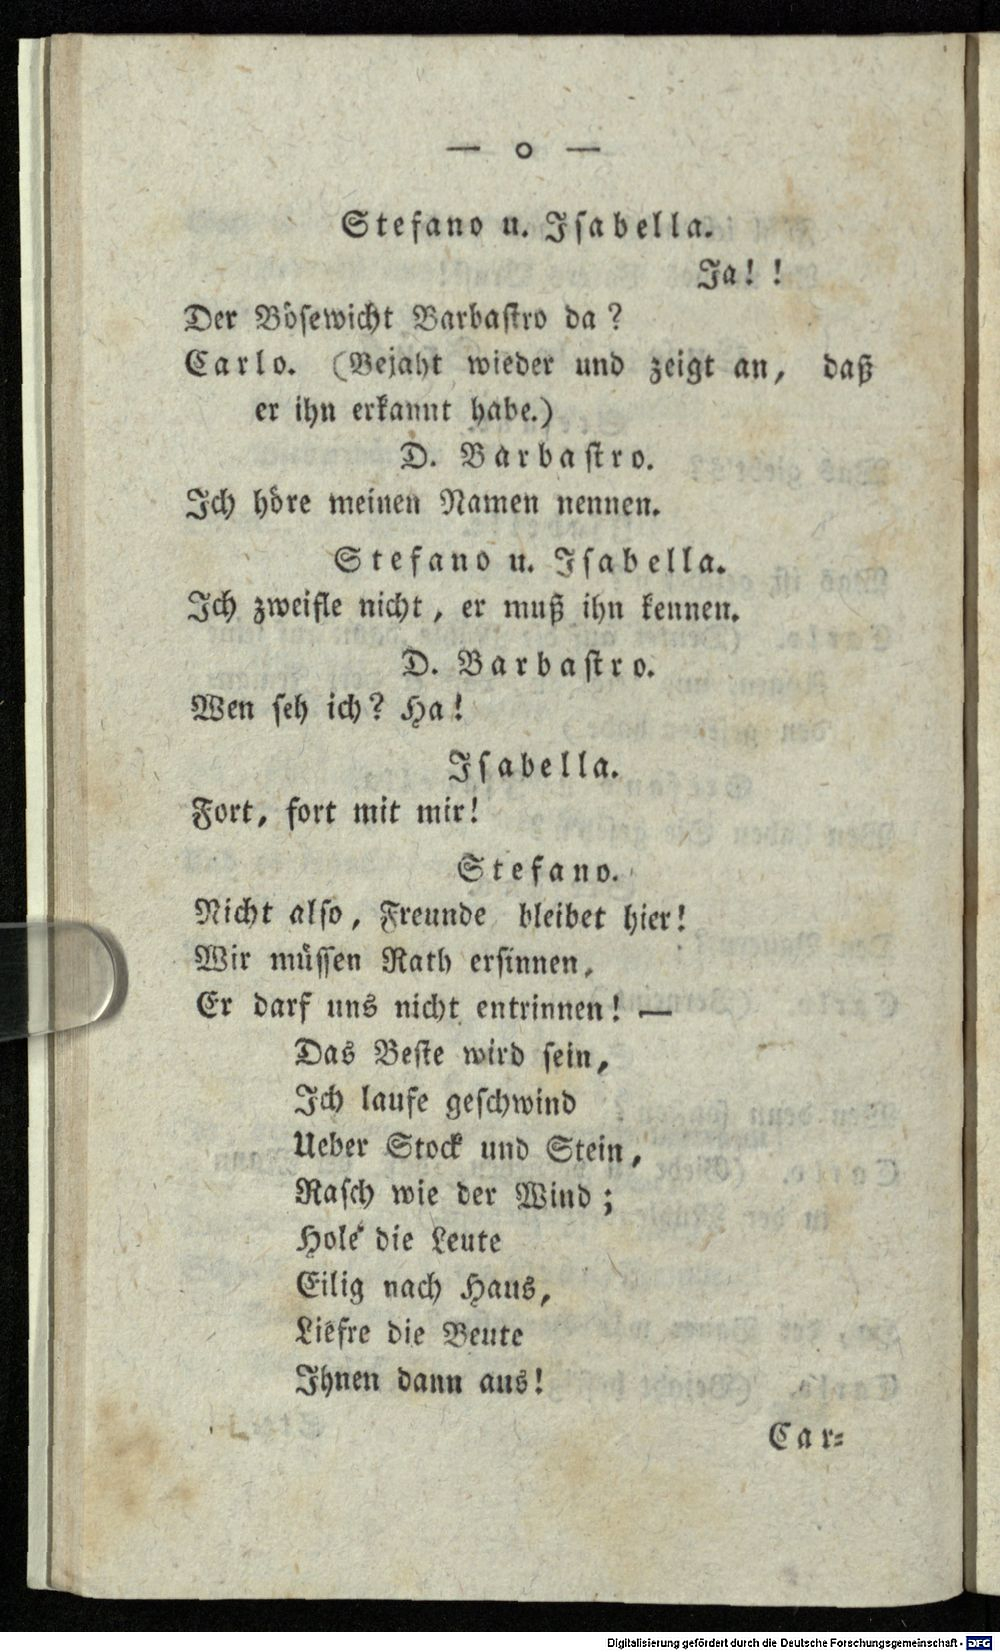 — o —
Stefano u. Isabella.
Ja! !
Der Bösewicht Barbastro da ?
Carlo. (Bejaht wieder und zeigt an, daß
er ihn erkannt habe.)
D. Barbastro.
Ich höre meinen Namen nennen.
Stefano u. Isabella.
Ich zweifle nicht, er muß ihn kennen.
D. Barbastro.
Wen seh ich? Ha!
Isabella.
Fort, fort mit mir!
Stefano.
Nicht also, Freunde bleibet hier!
Wir müssen Rath ersinnen,
Er darf uns nicht entrinnen! —
Das Beste wird sein,
Ich laufe geschwind
Ueber Stock und Stein,
Rasch wie der Wind;
Hole die Leute
Eilig nach Haus,
Liefre die Beute
Ihnen dann aus!
Car=
Digitalisierung gefördert durch die Deutsche Forschungsgemeinschaft - DFG